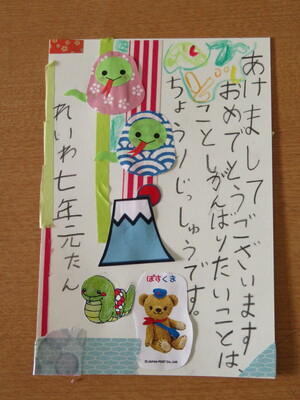 あけまして
おめでとうございます
ことしがんばりたいことは、
ちょうりじっしゅうです。
れいわ七年元たん
ぽすくま